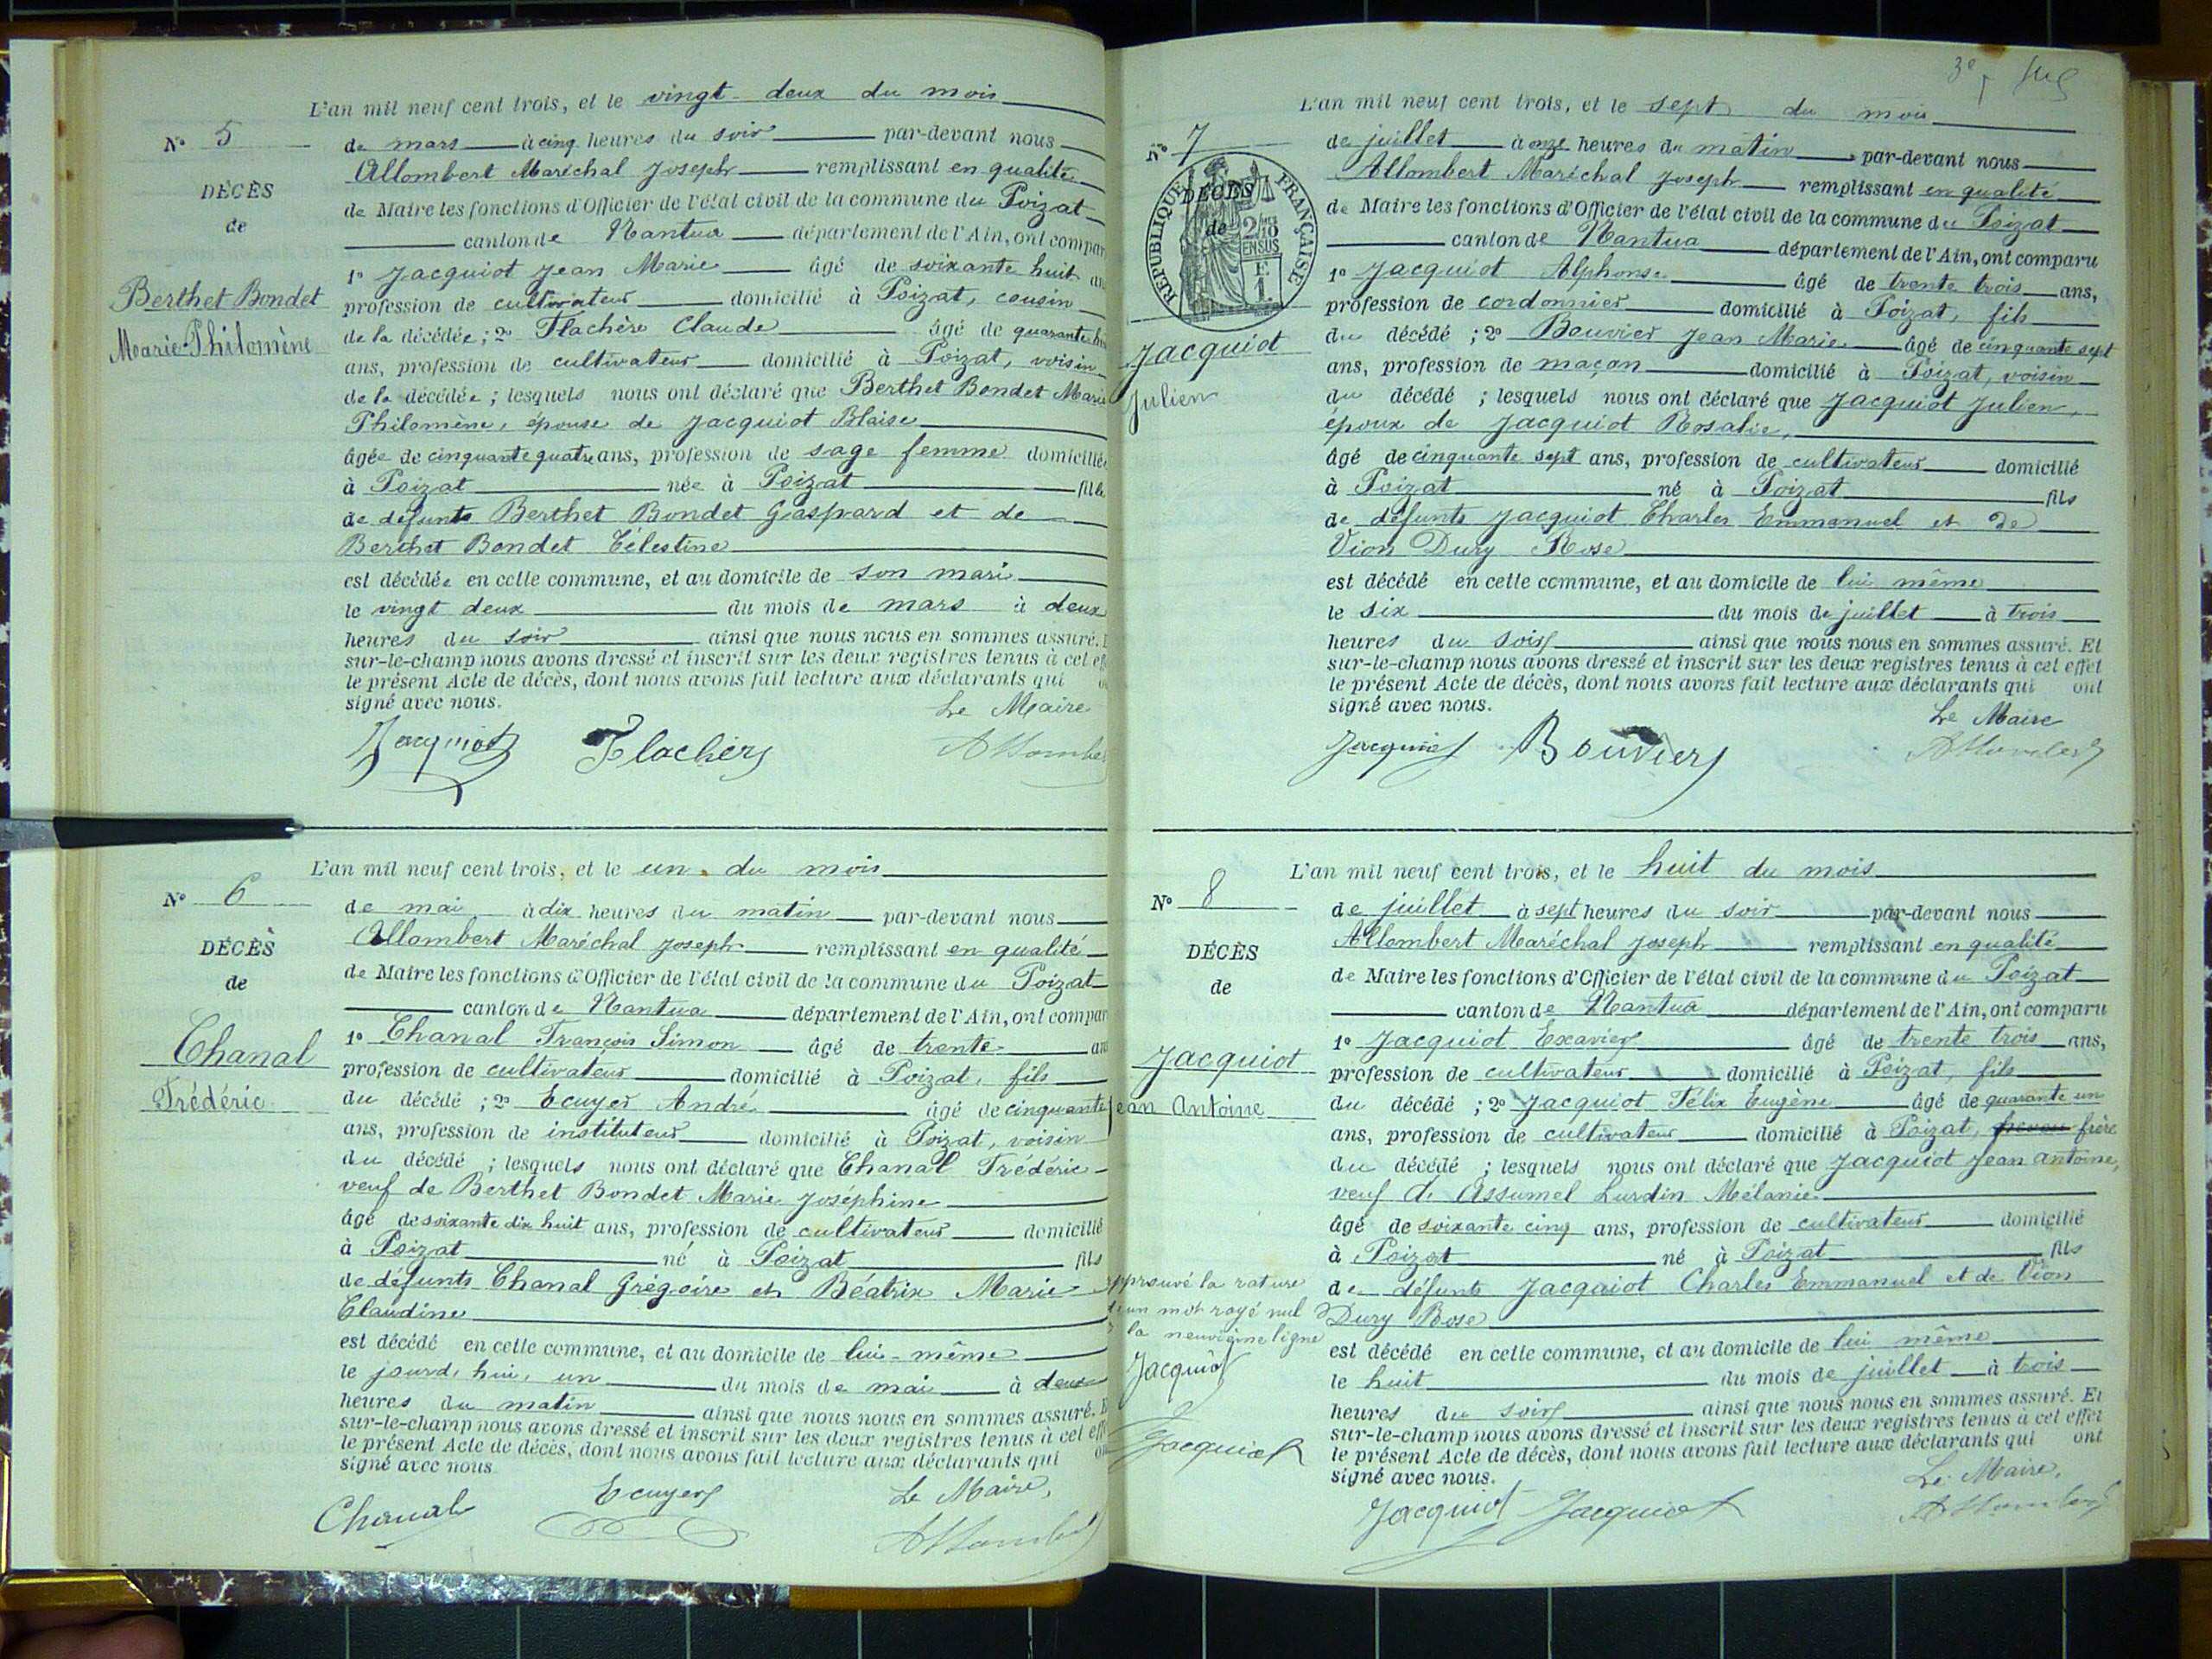 L'an mil neuf cent trois, et le vingt-deux du mois
N° 5
de mars à cinq heures du soir par-devant nous
DÉCÈS
de
Berthet Bondet
Marie Philomène
Allombert Maréchal Joseph remplissant en qualité
de Maire les fonctions d'Officier de l'état civil de la commune du Poizat
canton de Nantua département de l'Ain, ont compar
1° Jacquiot Jean Marie âgé de soixante huit an
profession de cultivateur domicilié à Poizat, cousin
de la décédée ; 2° Flachère Claude âgé de quarante
ans, profession de cultivateur domicilié à Poizat, voisin
de la décédée ; lesquels nous ont déclaré que Berthet Bondet Marie
Philomène, épouse de Jacquiot Blaise
âgée de cinquante quatre ans, profession de sage femme domiciliée
à Poizat née à Poizat fille
de défunts Berthet Bondet Gaspard et de
Berthet Bondet Célestine
est décédée en cette commune, et au domicile de son mari
le vingt deux du mois de mars à deux
heures du soir ainsi que nous nous en sommes assuré. E
sur-le-champ nous avons dressé et inscrit sur les deux registres tenus à cet eff
le présent Acte de décès, dont nous avons fait lecture aux déclarants qui o
signé avec nous.
Le Maire
Jacquiot Flachère Allombe
L'an mil neuf cent trois, et le un du mois
N° 6
de mai à dix heures du matin par-devant nous
DÉCÈS
de
Chanal
Frédéric
Allombert Maréchal Joseph remplissant en qualité
de Maire les fonctions d'Officier de l'état civil de la commune du Poizat
canton de Nantua département de l'Ain, ont compar
1° Chanal François Simon âgé de trente an
profession de cultivateur domicilié à Poizat, fils
du décédé ; 2° Ecuyer André âgé de cinquante
ans, profession de instituteur domicilié à Poizat, voisin
du décédé ; lesquels nous ont déclaré que Chanal Frédéric
veuf de Berthet Bondet Marie Joséphine
âgé de soixante dix huit ans, profession de cultivateur domicilié
à Poizat né à Poizat fils
de défunts Chanal Grégoire et Béatrix Marie
Claudine
est décédé en cette commune, et au domicile de lui-même
le jourd'hui, un du mois de mai à deux
heures du matin ainsi que nous nous en sommes assuré. E
sur-le-champ nous avons dressé et inscrit sur les deux registres tenus à cet eff
le présent Acte de décès, dont nous avons fait lecture aux déclarants qui on
signé avec nous
Chanal Ecuyer Le Maire,
Allombe
3e
L'an mil neuf cent trois, et le sept du mois
N° 7
DÉCÈS
de
RÉPUBLIQUE FRANÇAISE
2/10 EN SUS
E. 1.
Jacquiot
Julien
de juillet à onze heures du matin par-devant nous
Allombert Maréchal Joseph remplissant en qualité
de Maire les fonctions d'Officier de l'état civil de la commune du Poizat
canton de Nantua département de l'Ain, ont comparu
1° Jacquiot Alphonse âgé de trente trois ans,
profession de cordonnier domicilié à Poizat, fils
du décédé ; 2° Bouvier Jean Marie âgé de cinquante sept
ans, profession de maçon domicilié à Poizat, voisin
du décédé ; lesquels nous ont déclaré que Jacquiot Julien,
époux de Jacquiot Rosalie,
âgé de cinquante sept ans, profession de cultivateur domicilié
à Poizat né à Poizat fils
de défunts Jacquiot Charles Emmanuel et de
Vion Dury Rose
est décédé en cette commune, et au domicile de lui même
le six du mois de juillet à trois
heures du soir ainsi que nous nous en sommes assuré. Et
sur-le-champ nous avons dressé et inscrit sur les deux registres tenus à cet effet
le présent Acte de décès, dont nous avons fait lecture aux déclarants qui ont
signé avec nous.
Le Maire
Jacquiot Bouvier Allombert
L'an mil neuf cent trois, et le huit du mois
N° 8
DÉCÈS
de
Jacquiot
Jean Antoine
de juillet à sept heures du soir par-devant nous
Allombert Maréchal Joseph remplissant en qualité
de Maire les fonctions d'Officier de l'état civil de la commune du Poizat
canton de Nantua département de l'Ain, ont comparu
1° Jacquiot Exavier âgé de trente trois ans,
profession de cultivateur domicilié à Poizat, fils
du décédé ; 2° Jacquiot Félix Eugène âgé de quarante un
ans, profession de cultivateur domicilié à Poizat, frère
du décédé ; lesquels nous ont déclaré que Jacquiot Jean Antoine,
veuf de Assumel Lurdin Mélanie
âgé de soixante cinq ans, profession de cultivateur domicilié
à Poizat né à Poizat fils
de défunts Jacquiot Charles Emmanuel et de Vion
Dury Rose
est décédé en cette commune, et au domicile de lui même
le huit du mois de juillet à trois
heures du soir ainsi que nous nous en sommes assuré. Et
sur-le-champ nous avons dressé et inscrit sur les deux registres tenus à cet effet
le présent Acte de décès, dont nous avons fait lecture aux déclarants qui ont
signé avec nous.
Le Maire,
Jacquiot Jacquiot Allombert
approuvé la rature
d'un mot rayé nul
à la neuvième ligne
Jacquiot
Jacquiot